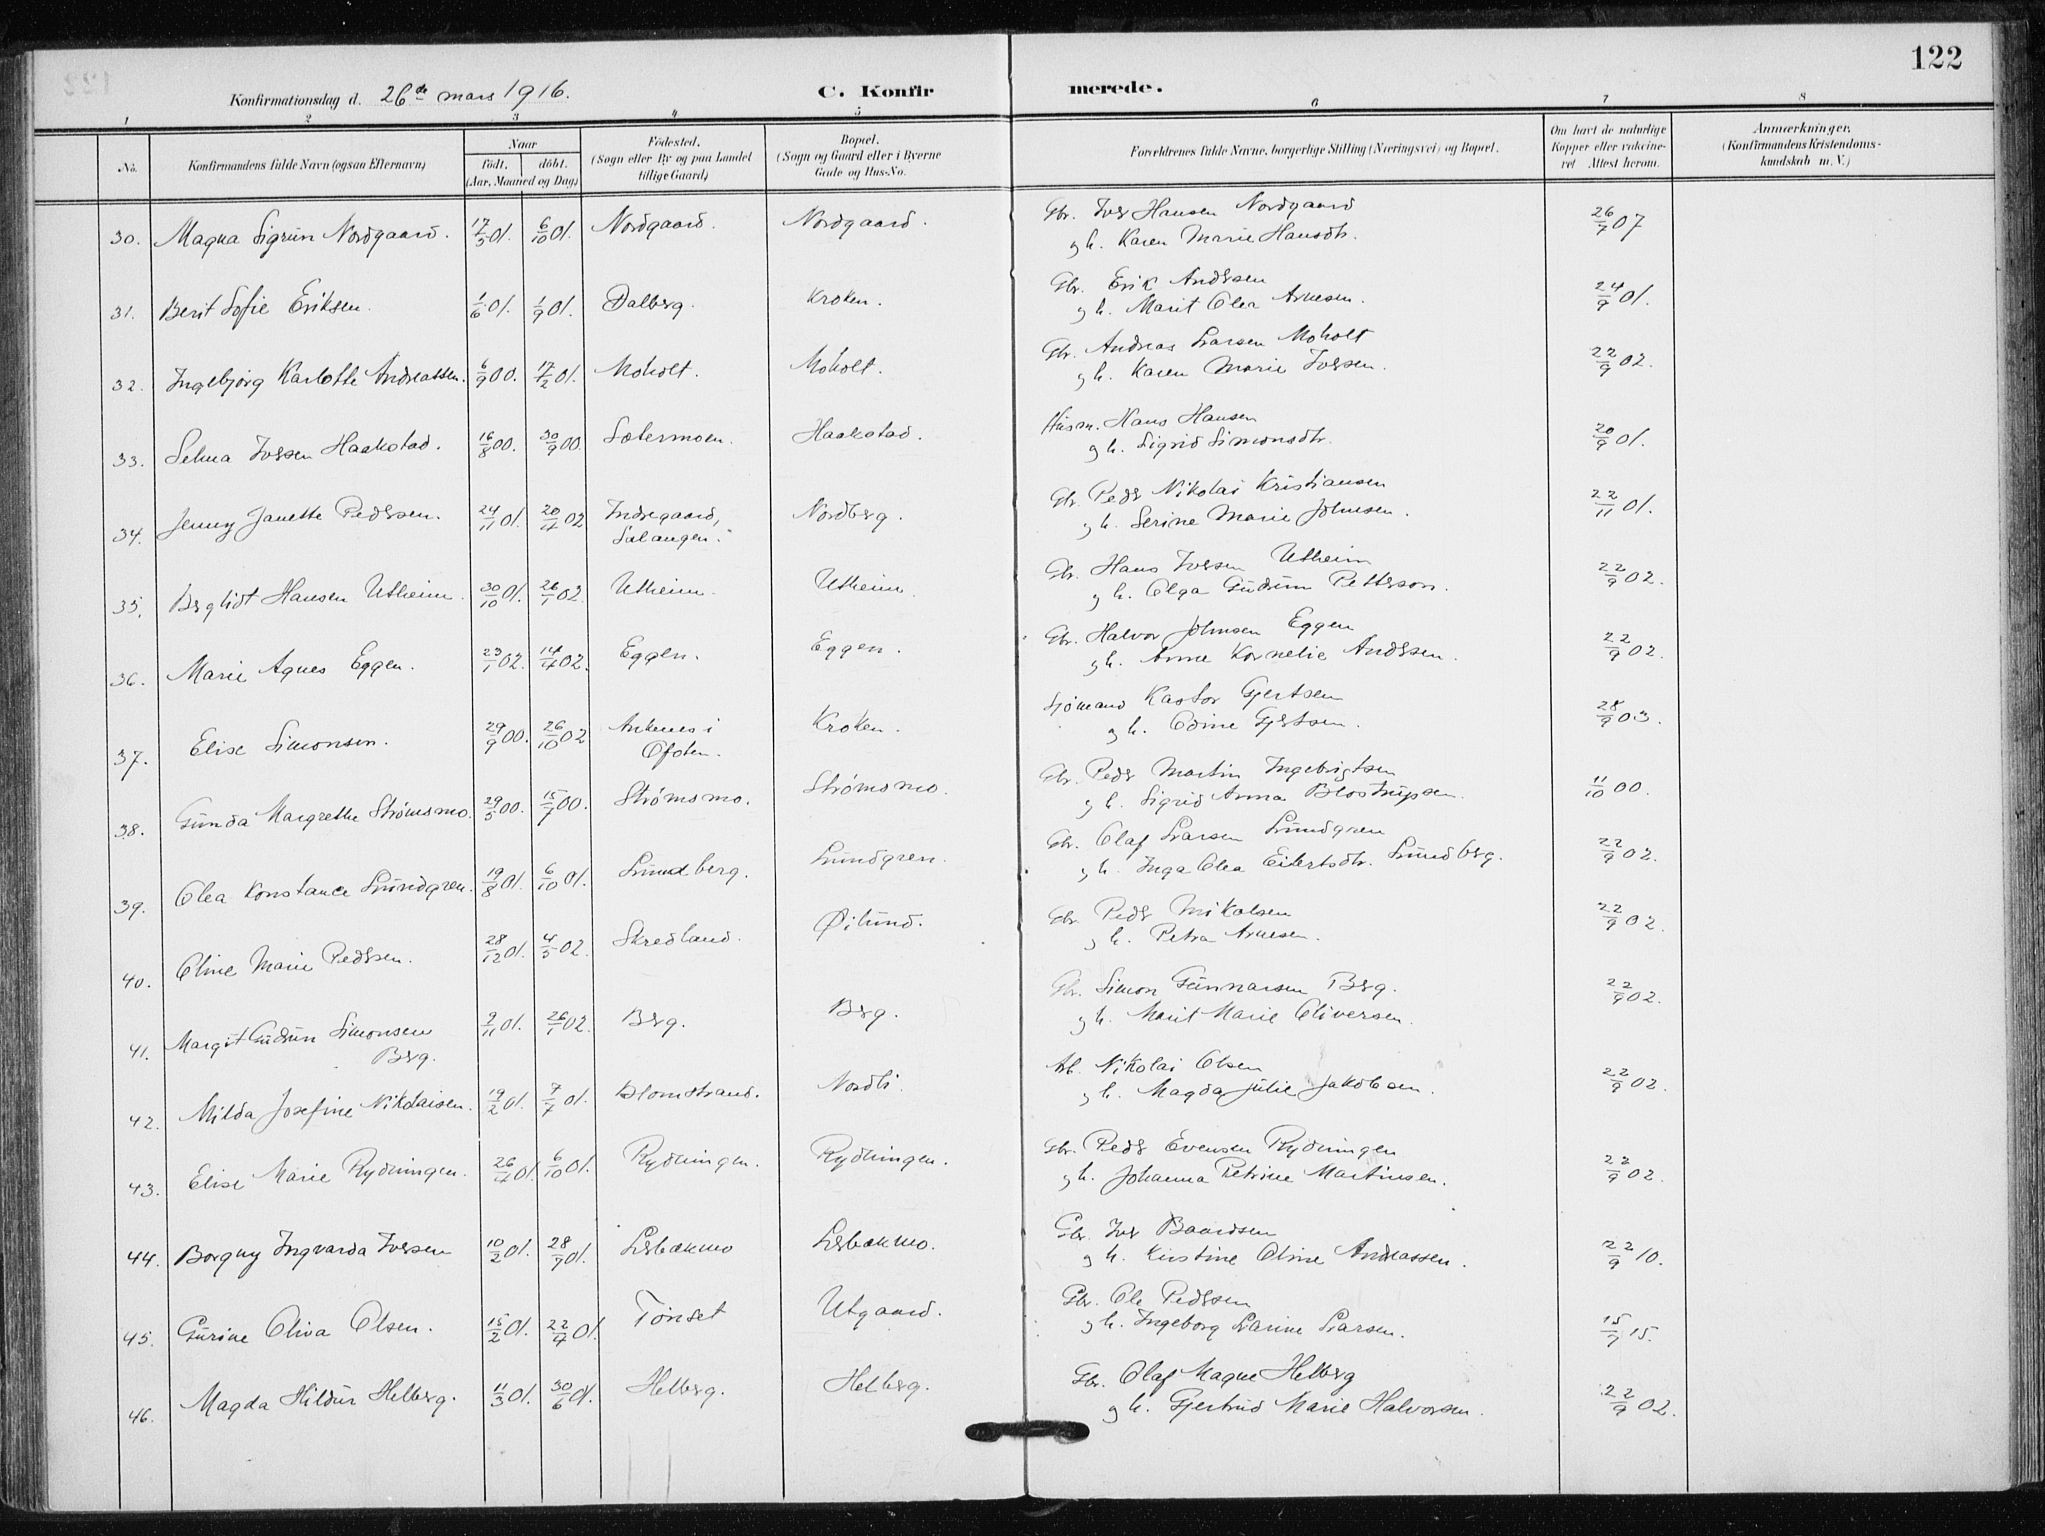 122
Konfirmationsdag d. 26de mars 1916.
C. Konfirmerede.
1 2 3 4 5 6 7 8
No. Konfirmandens fulde Navn (ogsaa Efternavn) Naar født. døbt. (Aar, Maaned og Dag) Fødested. (Sogn eller By og paa Landet tillige Gaard) Bopæl. (Sogn og Gaard eller i Byerne Gade og Hus-No. Forældrenes fulde Navne, borgerlige Stilling (Næringsvei) og Bopæl. Om havt de naturlige Kopper eller vakcineret Attest herom. Anmærkninger. (Konfirmandens Kristendomskundskab m. V.)
30. Magna Sigrun Nordgaard. 17/5 01. 6/10 01. Nordgaard. Nordgaard. Gbr. Iver Hansen Nordgaard
g h. Karen Marie Hansdtr. 26/7 07
31. Berit Sofie Eriksen. 1/6 01. 1/9 01. Dalberg. Kroken. Gbr. Erik Andersen
g h. Marit Olea Arnesen. 24/9 01.
32. Ingebjørg Karlotte Andreassen. 6/9 00. 17/2 01. Moholt. Moholt. Gbr. Andreas Larsen Moholt
g h. Karen Marie Iversen. 22/9 02.
33. Selma Iversen Haakstad. 16/8 00. 30/9 00. Sætermoen. Haakstad. Husm. Hans Hansen
g h. Sigrid Simonsdtr. 20/9 01.
34. Jenny Janette Pedersen. 24/11 01. 20/4 02 Indregaard, Salangen. Nordberg. Gbr. Peder Nikolai Kristiansen
g h. Serine Marie Johnsen. 22/11 01.
35. Bergliot Hansen Utheim. 30/10 01. 26/1 02. Utheim. Utheim. Gbr. Hans Iversen Utheim
g h. Olga Gudrun Petterson. 22/9 02.
36. Marie Agnes Eggen. 23/1 02. 14/4 02. Eggen. Eggen. Gbr. Halvor Johnsen Eggen
g h. Anne Kornelie Andersen. 22/9 02.
37. Elise Simonsen. 29/9 00. 26/10 02 Ankenes i Ofoten. Kroken. Sjømand Kastor Gjertsen
g h. Odine Gjertsen. 28/9 03.
38. Gunda Margrethe Strømsmo. 29/5 00. 15/7 00. Strømsmo. Strømsmo. Gbr. Peder Martin Ingebrigtsen
g h. Sigrid Anna Blostrupsen. 11/10 00.
39. Olea Konstance Lundgren. 19/8 01. 6/10 01. Lundberg. Lundgren. Gbr. Olaf Larsen Lundgren
g h. Inga Olea Eilertsdtr. Lundberg. 22/9 02.
40. Oline Marie Pedersen. 28/12 01. 4/5 02. Skredland. Øilund. Gbr. Peder Mikalsen
g h. Petra Arnesen. 22/9 02.
41. Margit Gudrun Simonsen Berg. 9/11 01. 26/1 02. Berg. Berg. Gbr. Simon Gunnarsen Berg.
g h. Marit Marie Oliversen. 22/9 02.
42. Milda Josefine Nikolaisen. 19/2 01. 7/7 01. Blomstrand. Nordli. Arb. Nikolai Olsen
g h. Magda Julie Jakobsen. 22/9 02.
43. Elise Marie Rydningen. 26/4 01. 6/10 01. Rydningen. Rydningen. Gbr. Peder Evensen Rydningen
g h. Johanna Petrine Martinsen. 22/9 02.
44. Borgny Ingvarda Iversen 10/2 01. 28/7 01. Lerbækmo Lerbækmo. Gbr. Iver Baardsen
g h. Kirstine Oline Andreassen. 22/9 10.
45. Gurine Oliva Olsen. 15/2 01. 22/4 01. Tønset Utgaard. Gbr. Ole Pedersen
g h. Ingeborg Larine Larsen. 15/7 15.
46. Magda Hildur Helberg. 11/3 01. 30/6 01. Helberg. Helberg. Gbr. Olaf Magne Helberg
g h. Gjertrud Marie Halvorsen. 22/9 02.